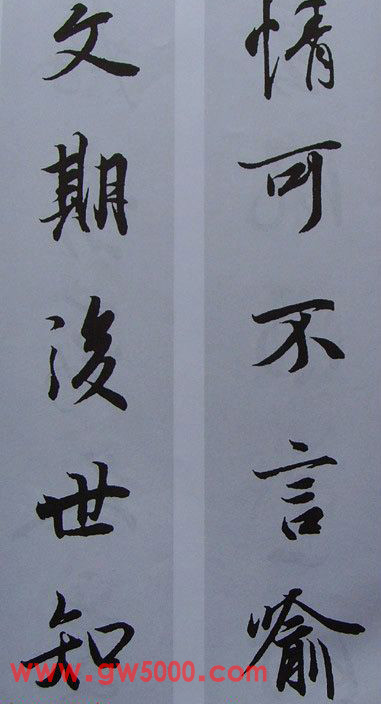 情可不言喻
文期後世知
www.gw5000.com